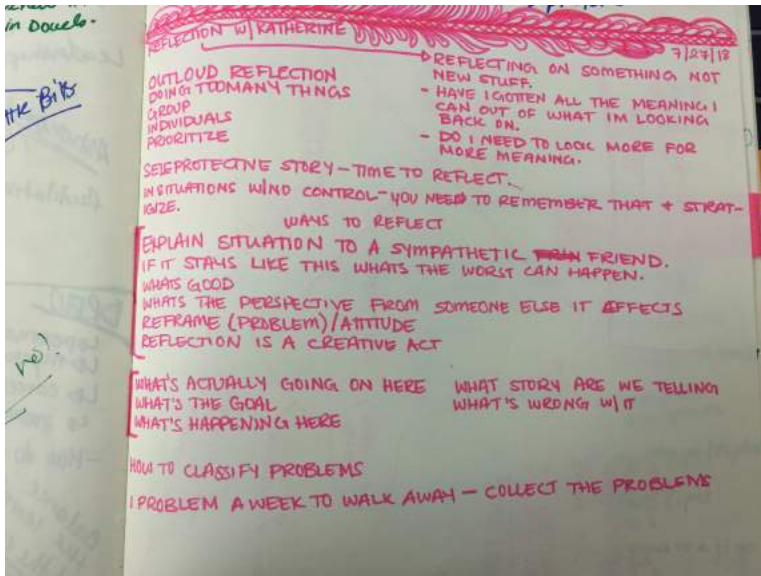 in Douels.
REFLECTION W/ KATHERINE
7/27/18
OUTLOUD REFLECTION
DOING TOOMANY THNGS
GROUP
INDIVIDUALS
PRIORITIZE
REFLECTING ON SOMETHING NOT
NEW STUFF.
- HAVE I GOTTEN ALL THE MEANING I
CAN OUT OF WHAT IM LOOKING
BACK ON.
- DO I NEED TO LOOK MORE FOR
MORE MEANING.
SELFPROTECTIVE STORY - TIME TO REFLECT.
IN SITUATIONS W/NO CONTROL - YOU NEED TO REMEMBER THAT + STRAT-
IGIZE.
WAYS TO REFLECT
EXPLAIN SITUATION TO A SYMPATHETIC FRIEND.
IF IT STAYS LIKE THIS WHATS THE WORST CAN HAPPEN.
WHATS GOOD
WHATS THE PERSPECTIVE FROM SOMEONE ELSE IT AFFECTS
REFRAME (PROBLEM)/ATTITUDE
REFLECTION IS A CREATIVE ACT
WHAT'S ACTUALLY GOING ON HERE
WHAT'S THE GOAL
WHAT'S HAPPENING HERE
WHAT STORY ARE WE TELLING
WHAT'S WRONG W/ IT
HOW TO CLASSIFY PROBLEMS
1 PROBLEM A WEEK TO WALK AWAY - COLLECT THE PROBLEMS